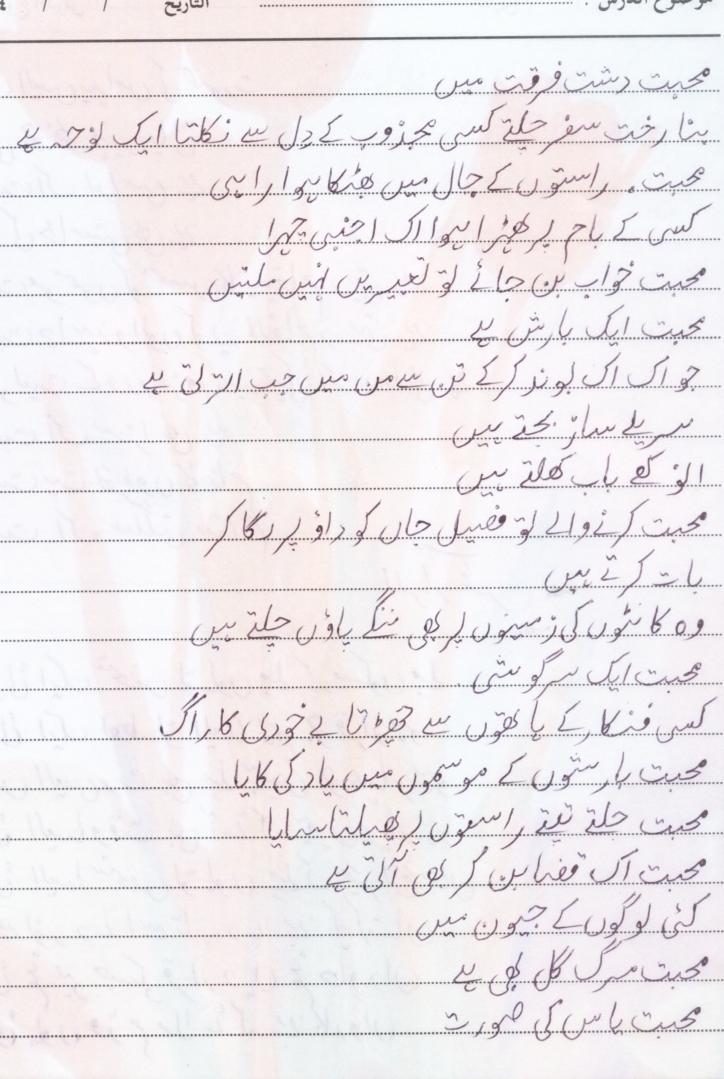 موضوع الدرس :
التاريخ / /
محبت دشت فرقت میں
بنا رخت سفر چلتے کسی مجذوب کے دل سے نکلتا ایک نوحہ ہے
محبت، راستوں کے جال میں بھٹکا ہوا راہی
کسی کے بام پر ٹھہرا ہوا اک اجنبی چہرا
محبت خواب بن جائے تو تعبیریں نہیں ملتیں
محبت ایک بارش ہے
جو اک اک بوند کر کے تن سے من میں جب اترتی ہے
سریلے ساز بجتے ہیں
انوکھے باب کھلتے ہیں
محبت کرنے والے تو فصیل جاں کو داؤ پر لگا کر
بات کرتے ہیں
وہ کانٹوں کی زمینوں پر بھی ننگے پاؤں چلتے ہیں
محبت ایک سرگوشی
کسی فنکار کے ہاتھوں سے چھڑتا بے خودی کا راگ
محبت بارشوں کے موسموں میں یاد کی کایا
محبت جلتے تپتے راستوں پر پھیلتا سایا
محبت اک قضا بن کر بھی آتی ہے
کئی لوگوں کے جیون میں
محبت مرگ گل بھی ہے
محبت یاس کی صورت